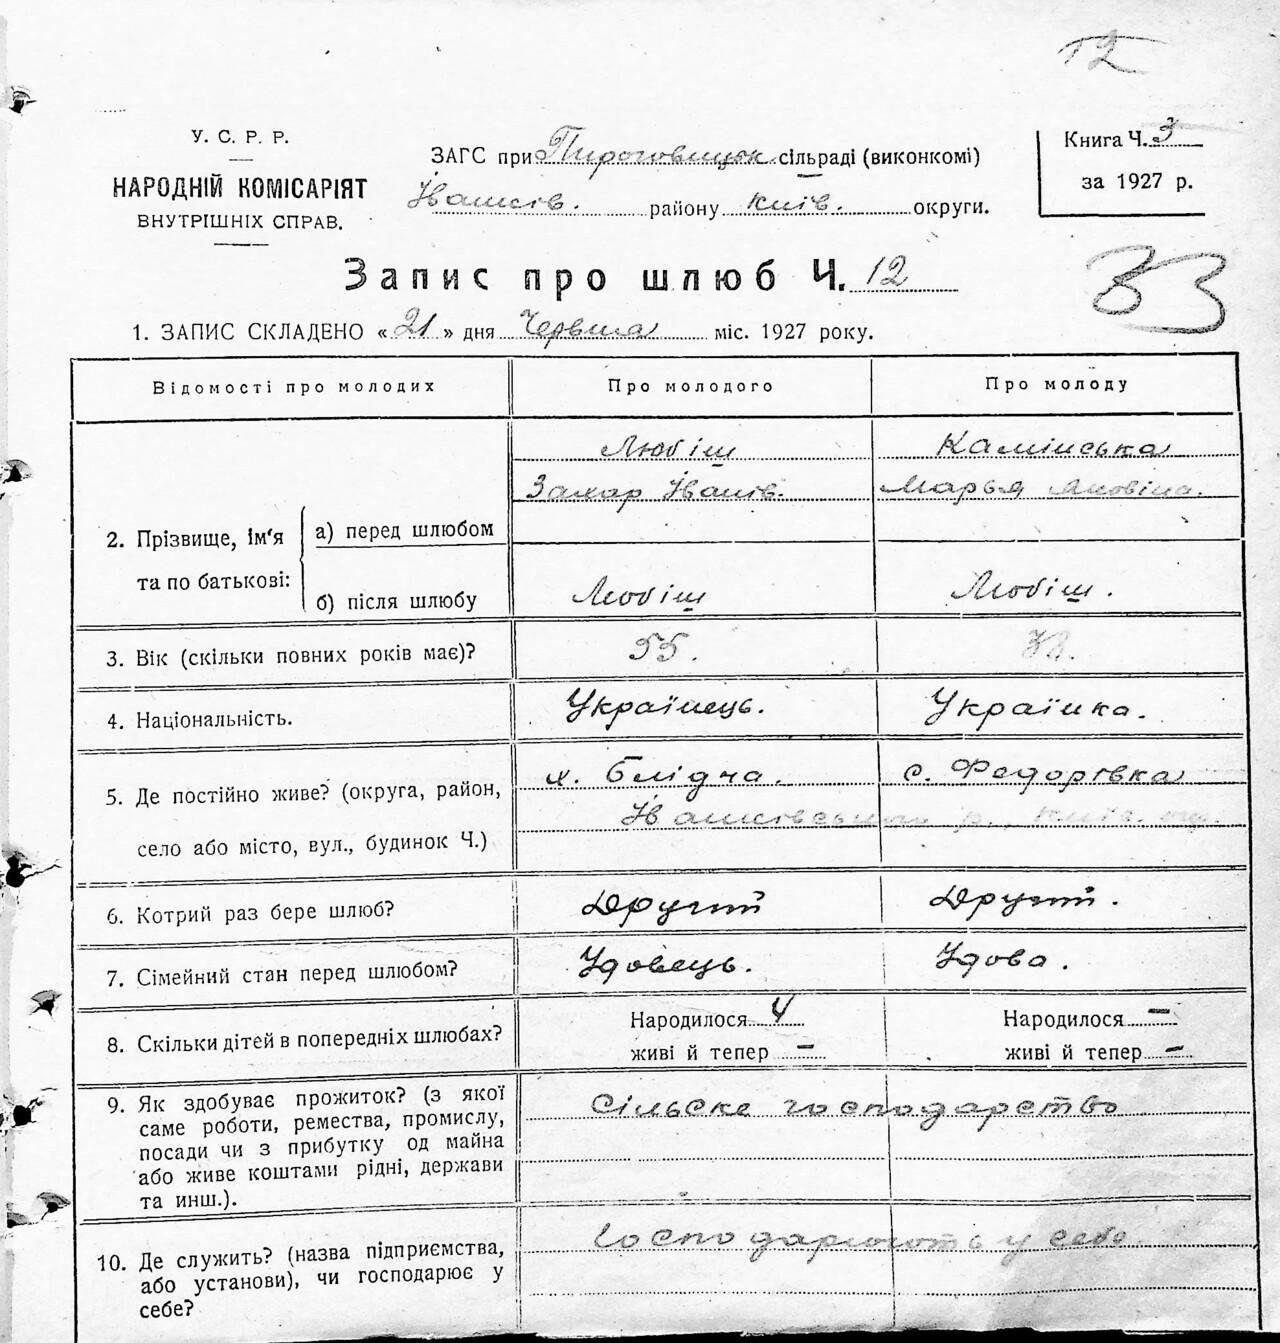 12
У. С. Р. Р.
НАРОДНІЙ КОМІСАРІЯТ
ВНУТРІШНІХ СПРАВ.
ЗАГС при Пироговицьк сільраді (виконкомі)
Іванків. району Київ. округи.
Книга Ч. 3
за 1927 р.
Запис про шлюб Ч. 12
33
1. ЗАПИС СКЛАДЕНО « 21 » дня Червня міс. 1927 року.
Відомості про молодих Про молодого Про молоду
Любіш Камінська
Захар Іванів. Марья Яковівна.
2. Прізвище, ім'я та по батькові:
а) перед шлюбом
б) після шлюбу Любіш Любіш.
3. Вік (скільки повних років має)? 55.
4. Національність. Українець. Українка.
5. Де постійно живе? (округа, район, село або місто, вул., будинок Ч.)
х. Блідча. с. Федорівка
Іванківського р., Київ. окр.
6. Котрий раз бере шлюб? Другий Другий.
7. Сімейний стан перед шлюбом? Удовець. Удова.
8. Скільки дітей в попередніх шлюбах?
Народилося 4 Народилося –
живі й тепер – живі й тепер –
9. Як здобуває прожиток? (з якої
саме роботи, ремества, промислу,
посади чи з прибутку од майна
або живе коштами рідні, держави
та инш.).
Сільське господарство
10. Де служить? (назва підприємства,
або установи), чи господарює у
себе?
Господарюють у себе